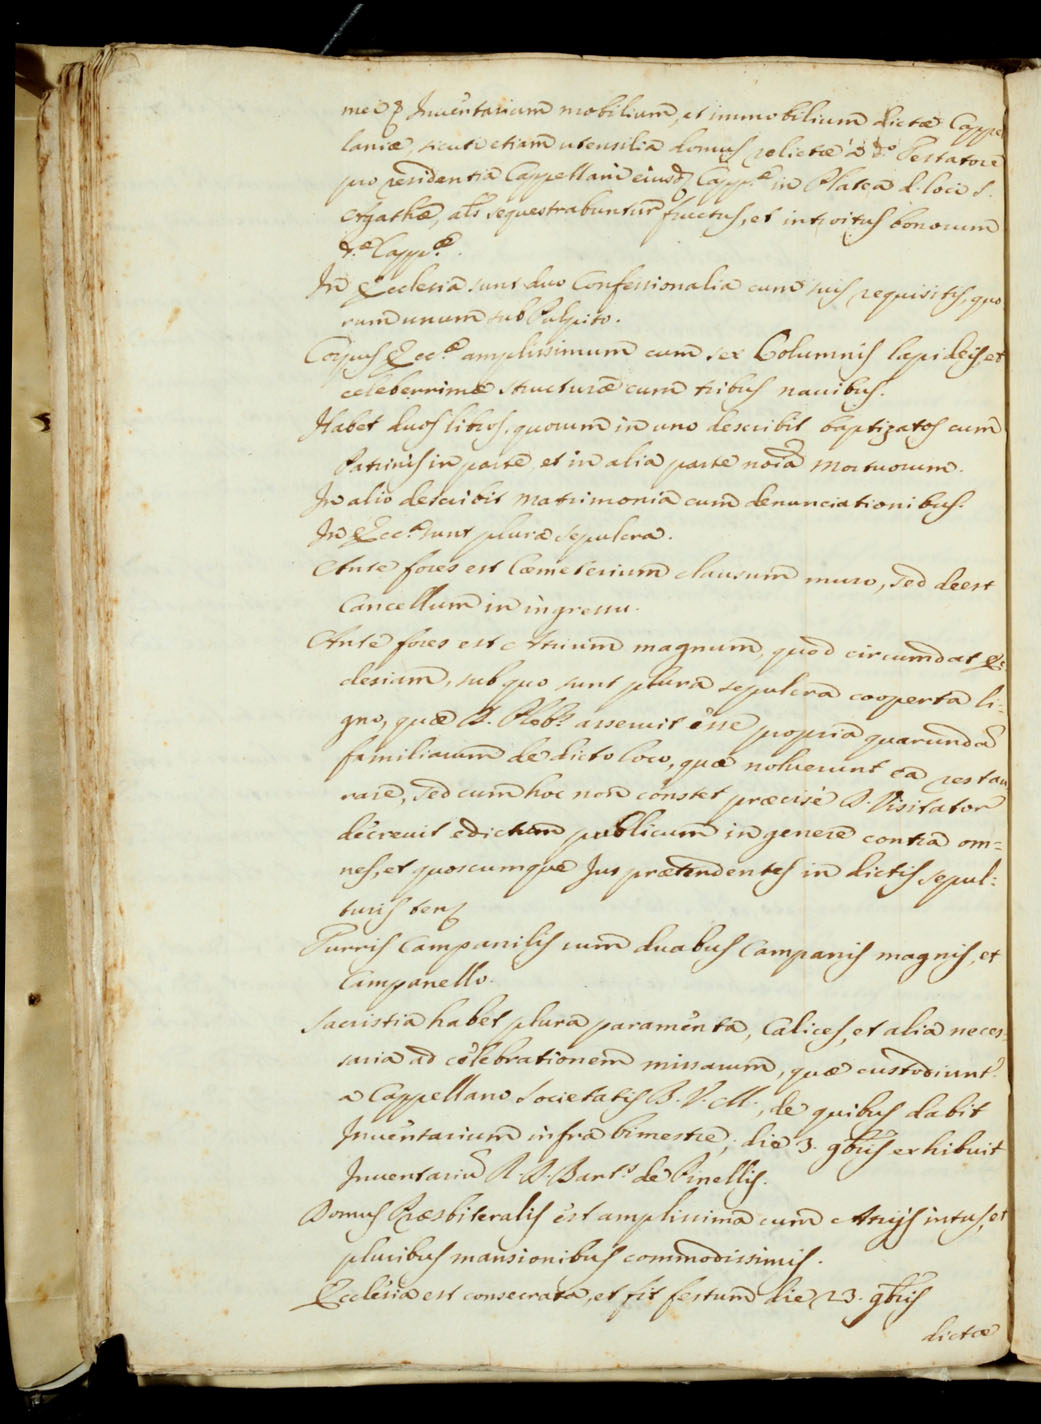 me & Inventarium mobilium, et immobilium dictæ Cappe
laniæ, sicuti etiam utensilia domus relictæ à d.º Testatore
pro residentia Cappellani eiusd. Capp.æ in Platea d. loci S.
Agathæ, als sequestrabuntur fructus, et introitus bonorum
d.æ Capp.æ.
In Ecclesia sunt duo Confessionalia cum suis requisitis, quo
rum unum sub Pulpito.
Corpus Ecc.æ amplissimum cum sex Columnis lapideis, et
celeberrimæ structuræ cum tribus navibus.
Habet duos libros, quorum in uno describit baptizatos cum
Patrinis in parte, et in alia parte noia Mortuorum.
In alio describit Matrimonia cum denunciationibus.
In Ecc.a sunt plura sepulcra.
Ante fores est Cœmeterium clausum muro, sed deest
Cancellum in ingressu.
Ante fores est Atrium magnum, quod circumdat Ec
clesiam, sub quo sunt plura sepulcra cooperta li-
gno, quæ D. Pleb.s asseruit esse propria quarundã
familiarum de dicto loco, quæ noluerunt ea restau
rare, sed cum hoc non constet præcisè D. Visitator
decrevit edictum publicum in genere contra om=
nes, et quoscumque Jus prætendentes in dictis sepul-
turis
Turris Campanilis cum duabus Campanis magnis, et
Campanello.
Sacristia habet plura paramenta, Calices, et alia neces-
saria ad celebrationem missarum, quæ custodiunt.r
a Cappellano Societatis B. V. M., de quibus dabit
Inventarium infra bimestre; die 3. 9bris exhibuit
Inventariũ R. D. Bart.s de Pinellis.
Domus Præsbiteralis est amplissima cum Atrijs intus, et
pluribus mansionibus commodissimis.
Ecclesia est consecrata, et fit festum die 23. 9bris
dictæ